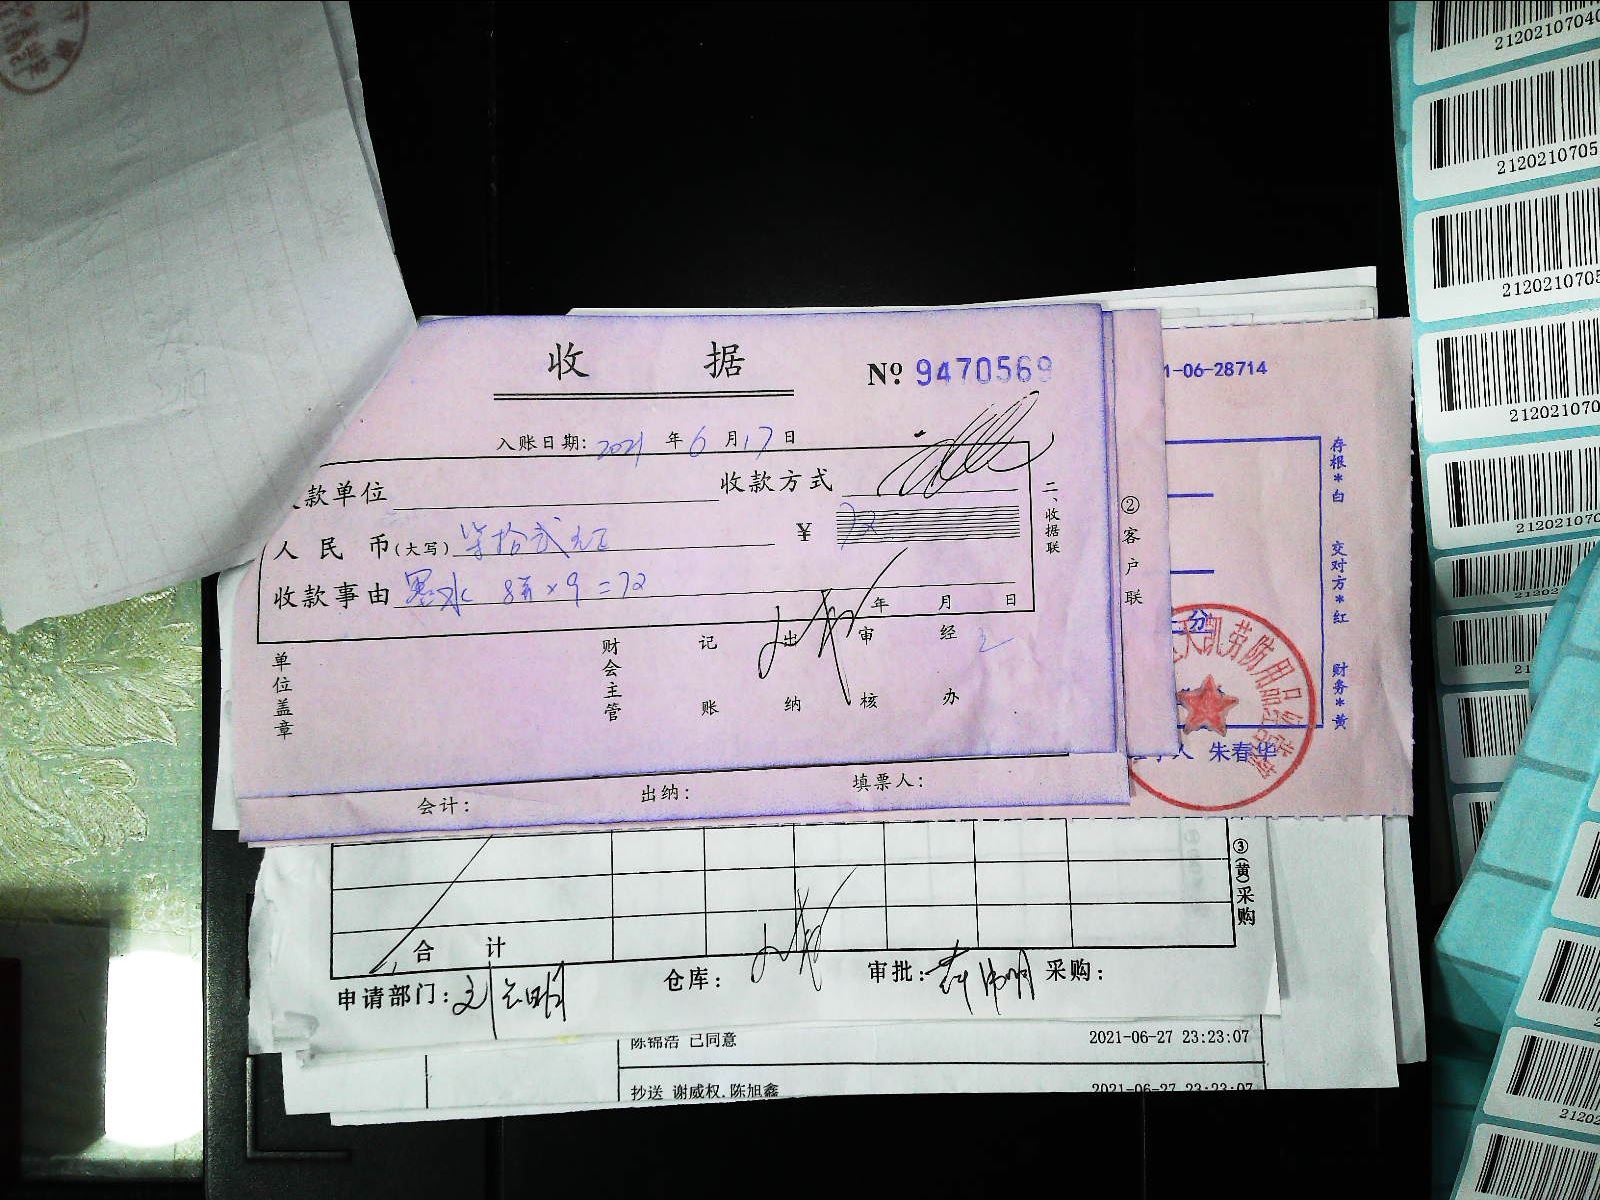 收 据
№ 9470569
入账日期: 2021 年 6 月 17 日
款单位 收款方式
人民币(大写) 柒拾贰元正 ¥ 72
收款事由 墨水 8瓶×9=72
年 月 日
单位盖章 财会主管 记账 出纳 审核 经办
二、收据联
②客户联
会计: 出纳: 填票人:
1-06-28714
存根*白 交对方*红 财务*黄
分
天凯劳防用品
朱春华
合 计
③(黄)采购
申请部门: 仓库: 审批: 采购:
陈锦浩 已同意 2021-06-27 23:23:07
抄送 谢威权,陈旭鑫 2021-06-27 23:23:07
2120210704
2120210705
212021070
212021070
21202107
2120210
21202
212
212
2120